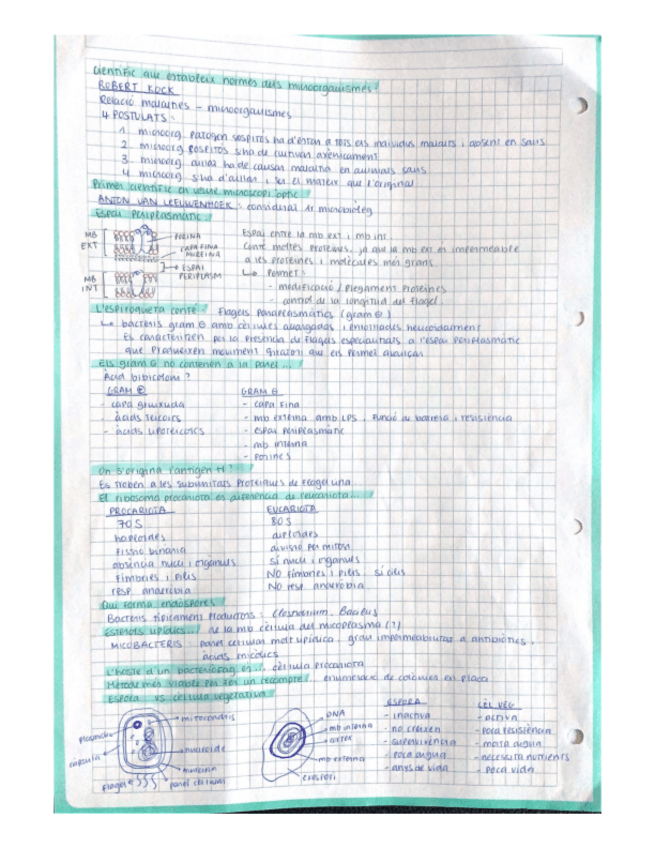 Científic que estableix normes dels microorganismes?
ROBERT KOCK
Relació malalties - microorganismes
4 POSTULATS:
1. microorg. patogen sospitós ha d'estar a tots els individus malalts i absent en sans
2. microorg sospitós s'ha de cultivar axènicament
3. microorg aïllat ha de causar malaltia en animals sans
4. microorg s'ha d'aïllar i ser el mateix que l'original
Primer científic en veure microscopi òptic
ANTON VAN LEEUWENHOEK: considerat 1r microbiòleg
Espai periplasmàtic
MB EXT
PORINA
CAPA FINA MUREINA
ESPAI PERIPLASM
MB INT
Espai entre la mb ext i mb int.
Conté moltes proteines, ja que la mb ext és impermeable
a les proteines i molècules més grans
↳ Permet:
- modificació / plegament proteines
- control de la longitud del flagel
L'espiroqueta conté: flagels periplasmàtics (gram ⊖)
↳ bacteris gram ⊖ amb cèl·lules allargades i enrotllades helicoidalment
Es caracteritzen per la presència de flagels especialitzats a l'espai periplasmàtic
que produeixen moviment giratori que els permet avançar
Els gram ⊖ no contenen a la paret...
Àcid
GRAM ⊕
- capa gruixuda
- àcids teicoics
- àcids lipoteicoics
GRAM ⊖
- capa fina
- mb externa amb LPS, funció de barrera i resistència
- espai periplasmàtic
- mb interna
- porines
On s'origina l'antigen H?
Es troben a les subunitats proteiques de flagel·lina
El ribosoma procariota es diferencia de l'eucariota...
PROCARIOTA
70 S
haploides
fissió binària
absència nucli i orgànuls
fimbries i pilis
resp. anaeròbia
EUCARIOTA
80 S
diploides
divisió per mitosi
sí nucli i orgànuls
NO fimbries i pilis, sí cilis
NO resp. anaeròbia
Qui forma endòspores?
Bacteris típicament productors: Clostridium, Bacillus
Esterols lipídics... de la mb cèl·lula del micoplasma (?)
MICOBACTERIS paret cel·lular molt lipídica, gran impermeabilitat a antibiòtics,
àcids micòlics
L'hoste d'un bacteriòfag és... cèl·lula procariota
Mètode més viable per fer un recompte? enumeració de colònies en placa
Espora vs cèl·lula vegetativa
plasmidis
càpsula
flagel
mitocondris
nucleoide
paret cel·lular
DNA
mb interna
cortex
mb externa
ESPORA
- inactiva
- no creixen
- supervivència
- poca aigua
- anys de vida
CÈL VEG
- activa
- poca resistència
- molta aigua
- necessita nutrients
- poca vida